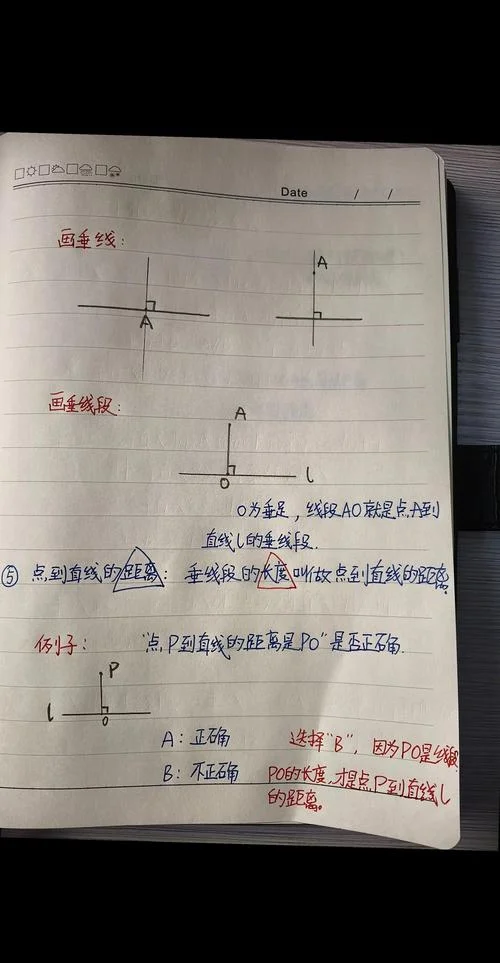 Date / /
画垂线:
A
A
画垂线段:
A
O
l
O为垂足,线段AO就是点A到
直线l的垂线段.
⑤ 点到直线的距离: 垂线段的长度叫做点到直线的距离.
例子: “点P到直线的距离是PO”是否正确.
P
l
O
A: 正确
B: 不正确
选择“B”, 因为PO是线段
PO的长度,才是点P到直线l
的距离。